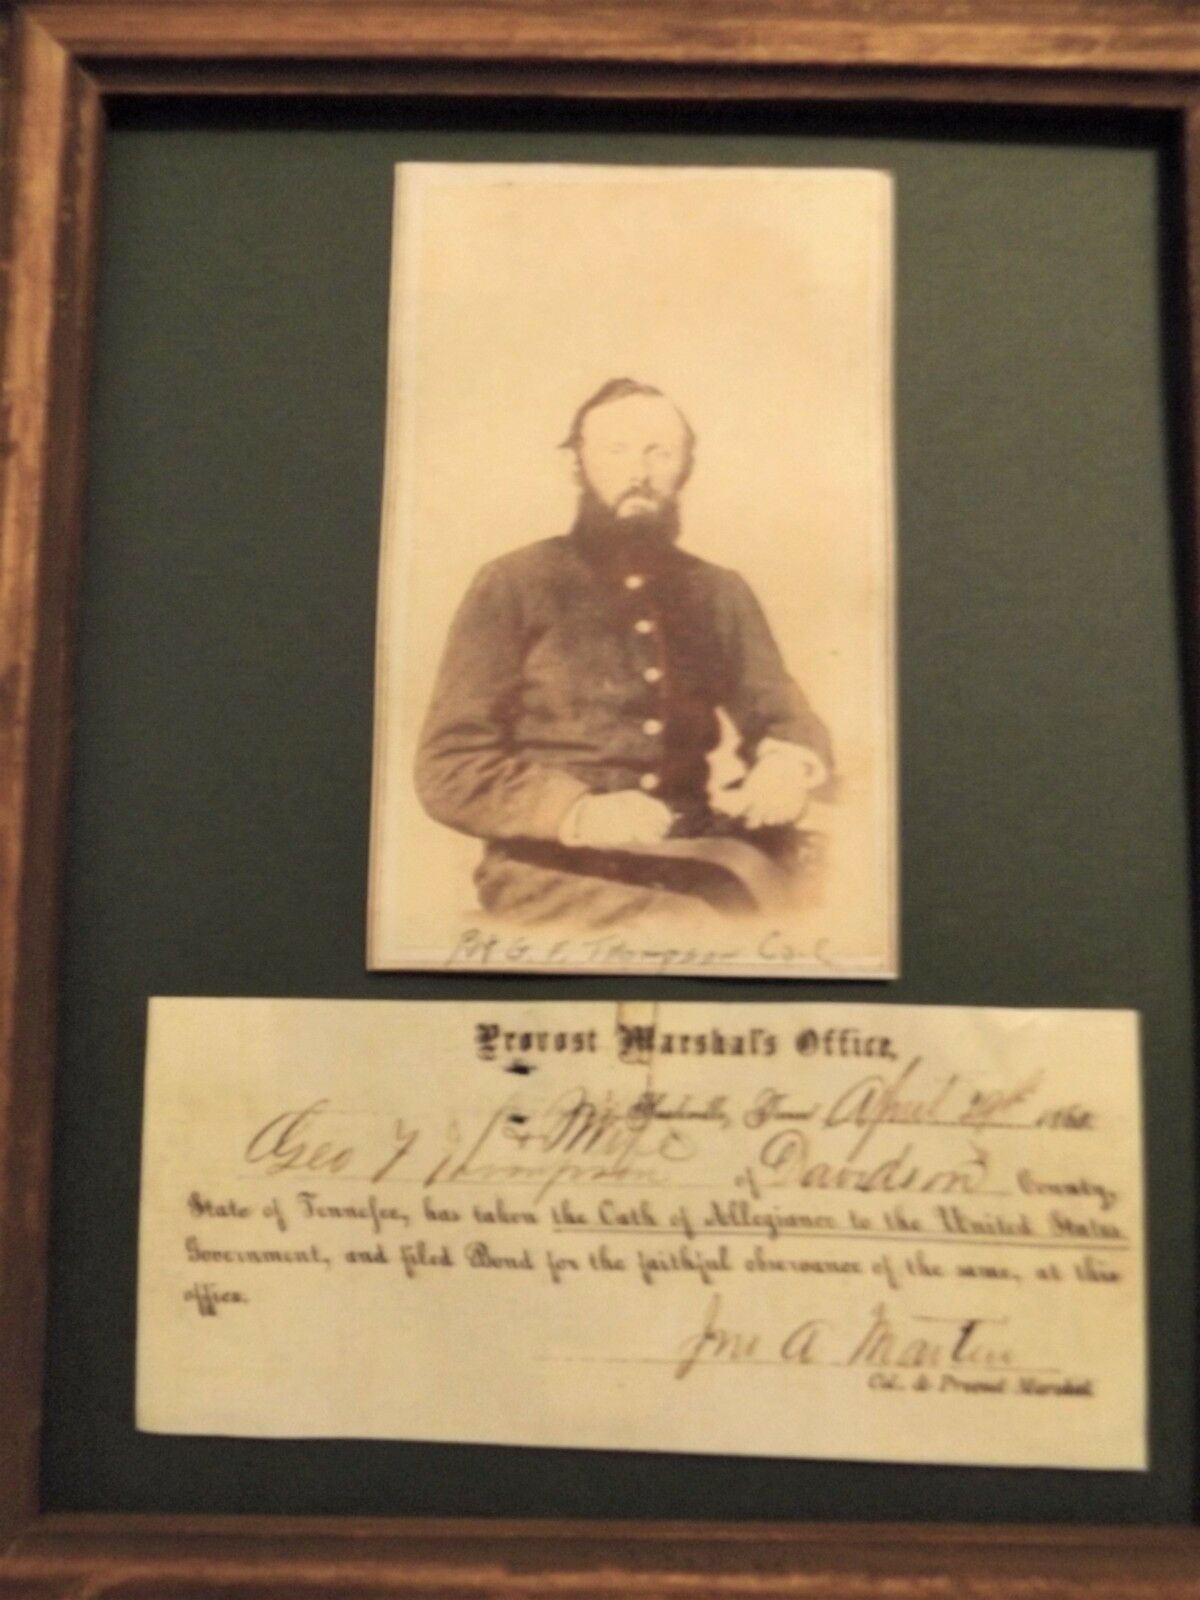 G. F. Thompson
Provost Marshal's Office,
Nashville, Tenn April 186
& Wife
Geo F Thompson of Davidson County,
State of Tennessee, has taken the Oath of Allegiance to the United States
Government, and filed Bond for the faithful observance of the same, at this
office.
Jno A Martin
Col. & Provost Marshal